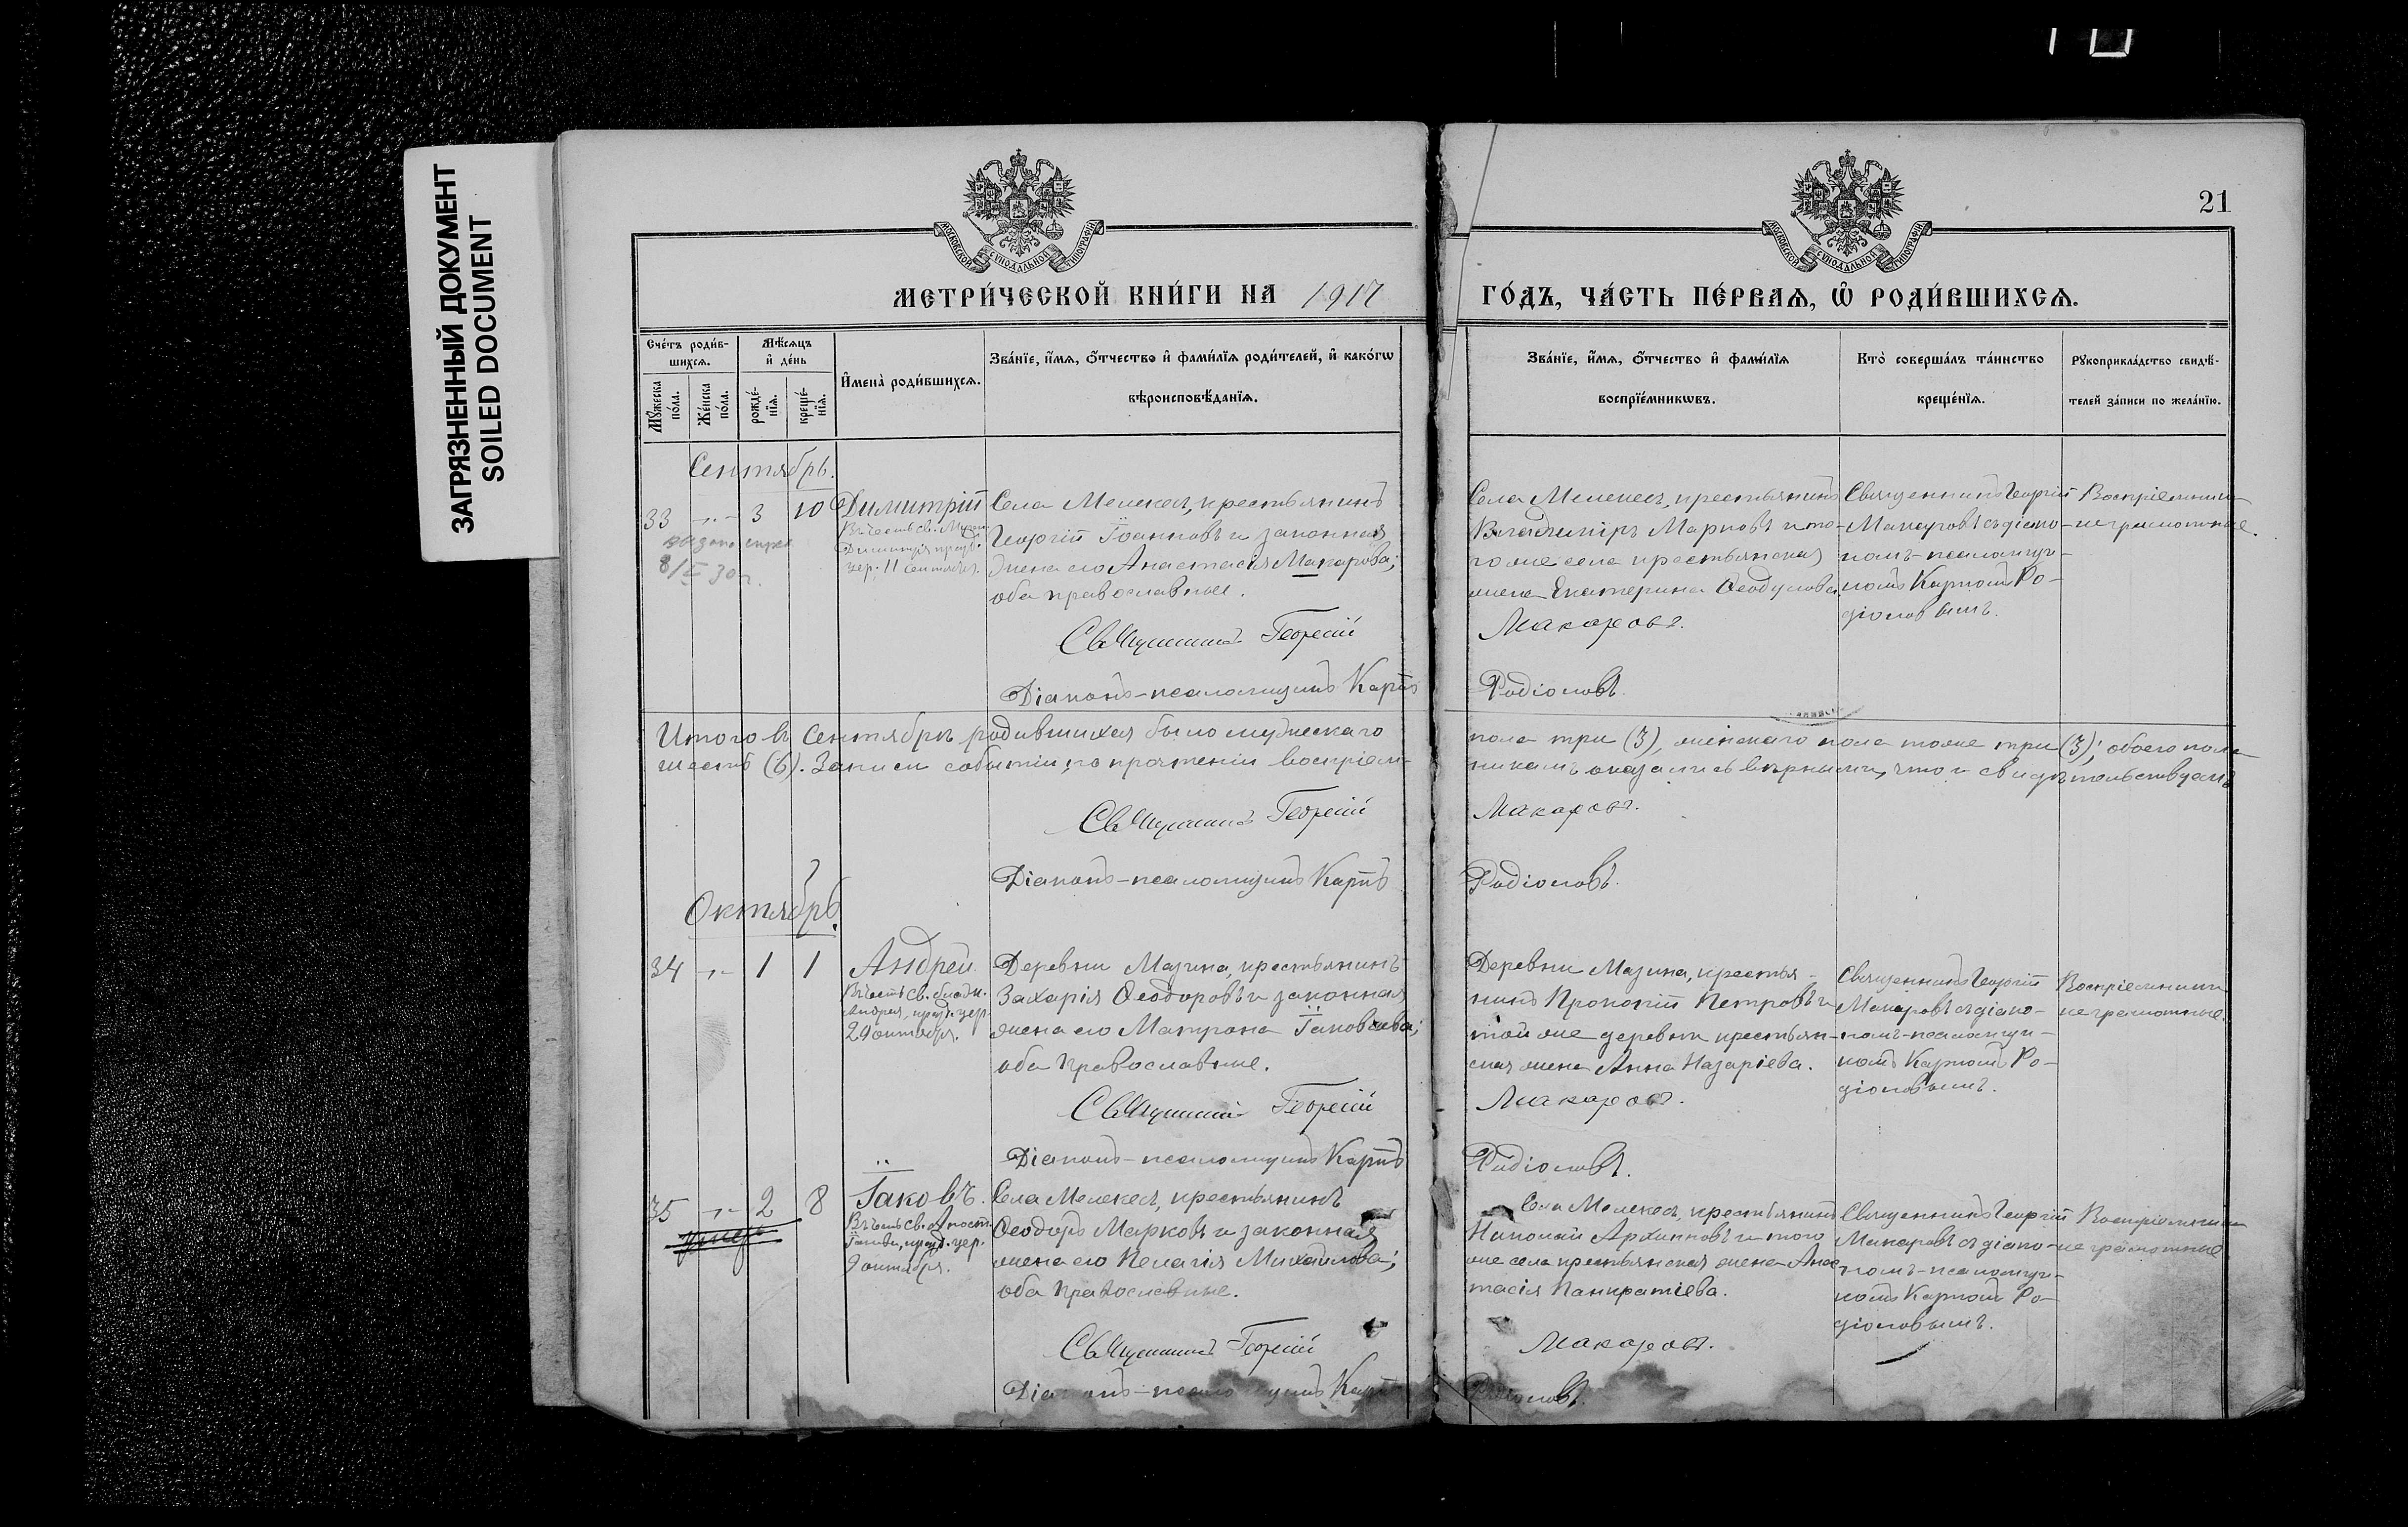 ЗАГРЯЗНЕННЫЙ ДОКУМЕНТ
SOILED DOCUMENT
21
МОСКОВСКОЙ СѴНОДАЛЬНОЙ ТИПОГРАФІИ
МОСКОВСКОЙ СѴНОДАЛЬНОЙ ТИПОГРАФІИ
МЕТРИ́ЧЕСКОЙ КНИ́ГИ НА 1917
ГО́ДЪ, ЧА́СТЬ ПЕ́РВАѦ, Ѡ҆ РОДИ́ВШИХСѦ.
Сче́тъ роди́в-
шихсѧ.
Мꙋ́жеска по́ла.
Же́нска по́ла.
Мѣ́сѧцъ
и҆ де́нь
рожде́-
нїѧ.
креще́-
нїѧ.
И҆мена̀ роди́вшихсѧ.
Зва́нїе, и҆́мѧ, ѻ҆́тчество и҆ фами́лїѧ роди́телей, и҆ како́гѡ
вѣроисповѣ́данїѧ.
Зва́нїе, и҆́мѧ, ѻ҆́тчество и҆ фами́лїѧ
воспрїе́мникѡвъ.
Кто̀ соверша́лъ та́инство
креще́нїѧ.
Рꙋкоприкла́дство свидѣ́-
телей за́писи по жела́нїю.
Сентябрь.
33 -„- 3 10
выдана справ
8/I 30 г.
Димитрій
Въ честь св. Муч.
Димитрія празд.
цер. 11 Сентября.
Села Мелекес, крестьянинъ
Георгій Іоанновъ и законная
жена его Анастасія Макарова;
оба православные.
Священникъ Георгій
Діаконъ-псаломщикъ Карпъ
Села Мелекес, крестьянинъ
Владиміръ Марковъ и то-
го же села крестьянская
жена Екатерина Ѳеодулова.
Макаровъ.
Родіоновъ.
Священникъ Георгій
Макаровъ съ діако-
номъ-псаломщи-
комъ Карпомъ Ро-
діоновымъ.
Воспріемники
неграмотные.
Итого въ Сентябрѣ родившихся было мужескаго
пола три (3), женскаго пола тоже три (3); обоего пола
шесть (6). Записи событій, по прочтеніи воспріем-
никамъ оказались вѣрными, что и свидѣтельствуемъ
Священникъ Георгій
Макаровъ.
Діаконъ-псаломщикъ Карпъ
Родіоновъ.
Октябрь.
34 -„- 1 1
Андрей.
Въ честь св. блаж.
Андрея, празд. цер.
2 октября.
Деревни Мазина, крестьянинъ
Захарія Ѳеодоровъ и законная
жена его Матрона Іаковлева;
оба православные.
Священникъ Георгій
Діаконъ-псаломщикъ Карпъ
Деревни Мазина, крестья-
нинъ Прокопій Петровъ и
той же деревни крестьян-
ская жена Анна Назаріева.
Макаровъ.
Родіоновъ.
Священникъ Георгій
Макаровъ съ діако-
номъ-псаломщи-
комъ Карпомъ Ро-
діоновымъ.
Воспріемники
неграмотные.
35 -„- 2 8
умеръ
Іаковъ.
Въ честь св. Апост.
Іакова, празд. цер.
9 октября.
Села Мелекес, крестьянинъ
Ѳеодоръ Марковъ и законная
жена его Пелагія Михайлова;
оба православные.
Священникъ Георгій
Діаконъ-псаломщикъ Карпъ
Села Мелекес, крестьянинъ
Николай Архиповъ и того
же села крестьянская жена Анас-
тасія Панкратіева.
Макаровъ.
Родіоновъ.
Священникъ Георгій
Макаровъ съ діако-
номъ-псаломщи-
комъ Карпомъ Ро-
діоновымъ.
Воспріемники
неграмотные